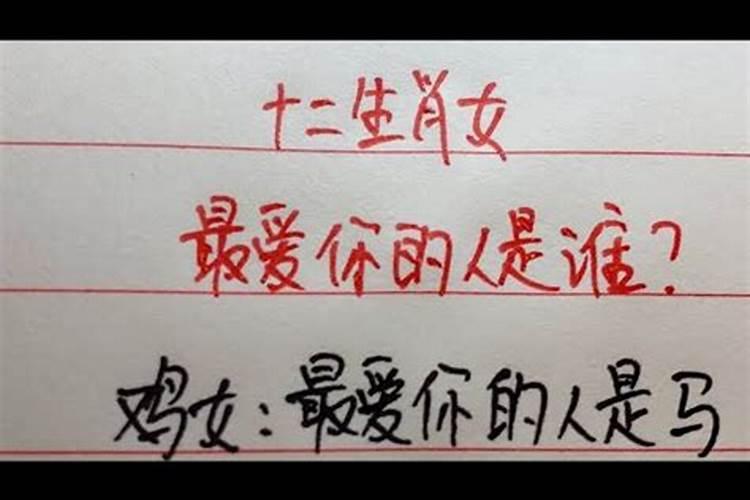 十二生肖女
最爱你的人是谁?
鸡女:最爱你的人是马